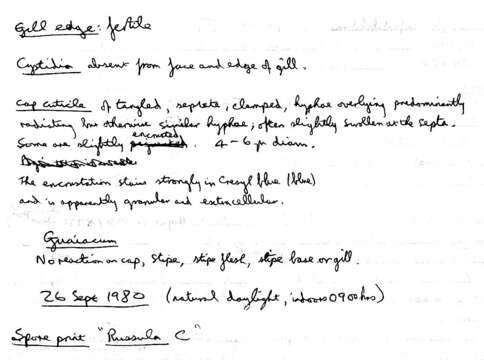 Gill edge: fertile
Cystidia absent from face and edge of gill.
Cap cuticle of tangled, septate, clamped, hyphae overlying predominantly
radiating but otherwise similar hyphae, often slightly swollen at the septa.
Some are slightly encrusted. 4-6 µ diam.
The encrustation stains strongly in Cresyl blue (blue)
and is apparently granular and extracellular.
Guaiacum
No reaction on cap, stipe, stipe flesh, stipe base or gill.
26 Sept 1980 (natural daylight, indoors 0900 hrs)
Spore print "Russula C"